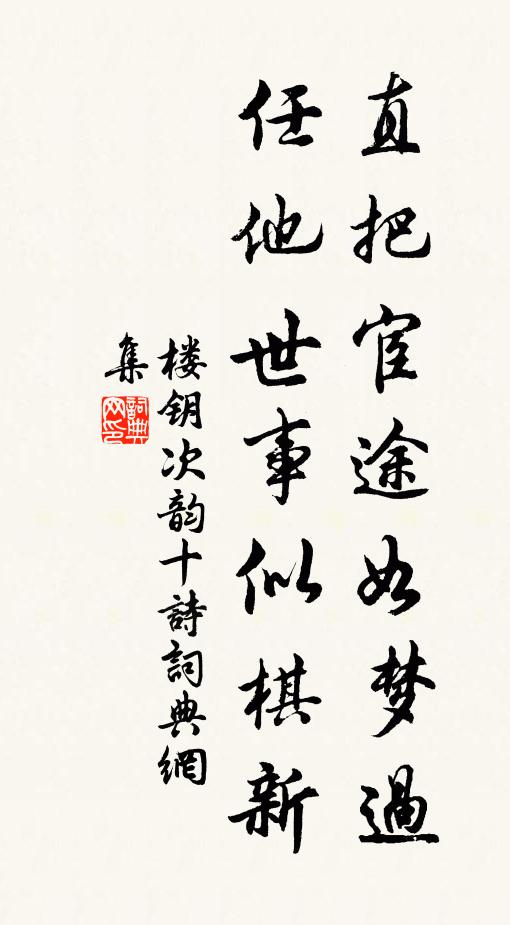 直把宦途如梦過
任他世事似棋新
楼钥次韵十詩詞典網
集
詞典
网印